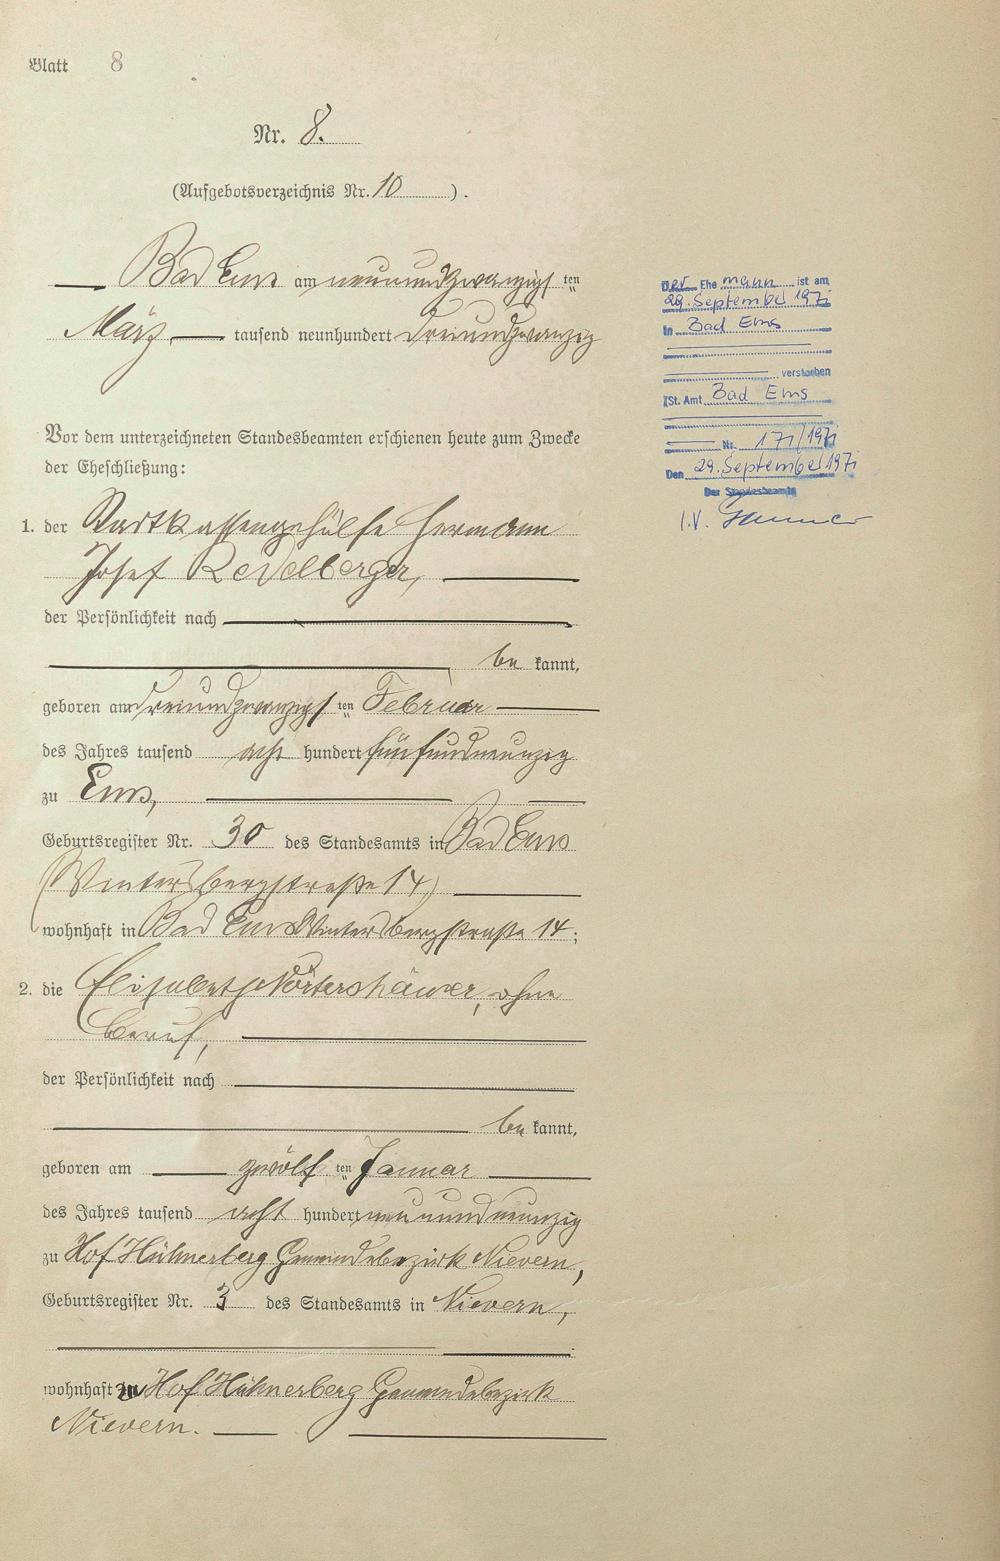 Blatt 8
Nr. 8.
(Aufgebotsverzeichnis Nr. 10).
Bad Ems am neunundzwanzigsten
März tausend neunhundert dreiundzwanzig
Vor dem unterzeichneten Standesbeamten erschienen heute zum Zwecke
der Eheschließung:
1. der Stadtkassengehülfe Hermann
Josef Redelberger,
der Persönlichkeit nach
bekannt,
geboren am dreiundzwanzigsten Februar
des Jahres tausend acht hundert fünfundneunzig
zu Ems,
Geburtsregister Nr. 30 des Standesamts in Bad Ems
(Wintersbergstraße 14)
wohnhaft in Bad Ems Wintersbergstraße 14;
2. die Elisabeth Pörtershäuser, ohne
Beruf,
der Persönlichkeit nach
bekannt,
geboren am zwölften Januar
des Jahres tausend acht hundert neunundneunzig
zu Hof Hühnerberg Gemeindebezirk Nievern,
Geburtsregister Nr. 3 des Standesamts in Nievern,
wohnhaft in Hof Hühnerberg Gemeindebezirk
Nievern.
Der Ehemann ist am
29. September 1971
in Bad Ems
verstorben
(St. Amt Bad Ems
Nr. 171/1971
Den 29. September 1971
Der Standesbeamte
I.V.